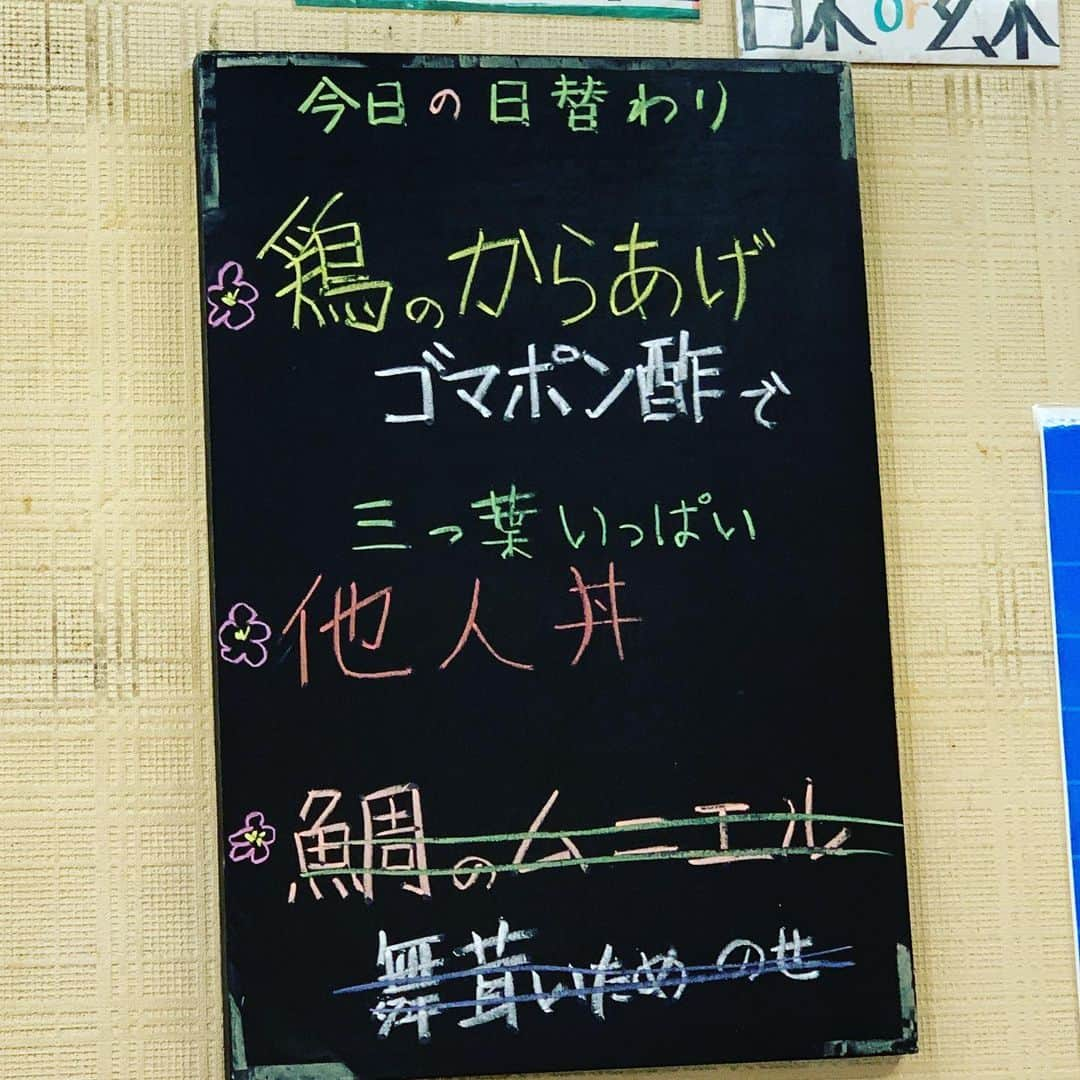 白米or玄米
今日の日替わり
鶏のからあげ
ゴマポン酢で
三つ葉いっぱい
他人丼
鯛のムニエル
舞茸いためのせ